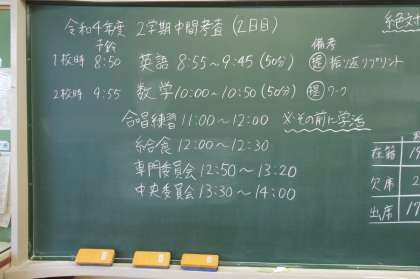 令和4年度 2学期中間考査 (2日目)
絶対
予鈴
備考
1校時 8:50 英語 8:55～9:45 (50分) 提 振り返りプリント
2校時 9:55 数学 10:00～10:50 (50分) 提 ワーク
合唱練習 11:00～12:00 ※その前に学活
給食 12:00～12:30
専門委員会 12:50～13:20
中央委員会 13:30～14:00
在籍 19
欠席 2
出席 17